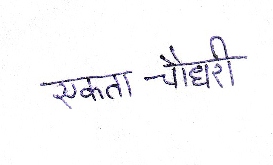 एकता चौधरी